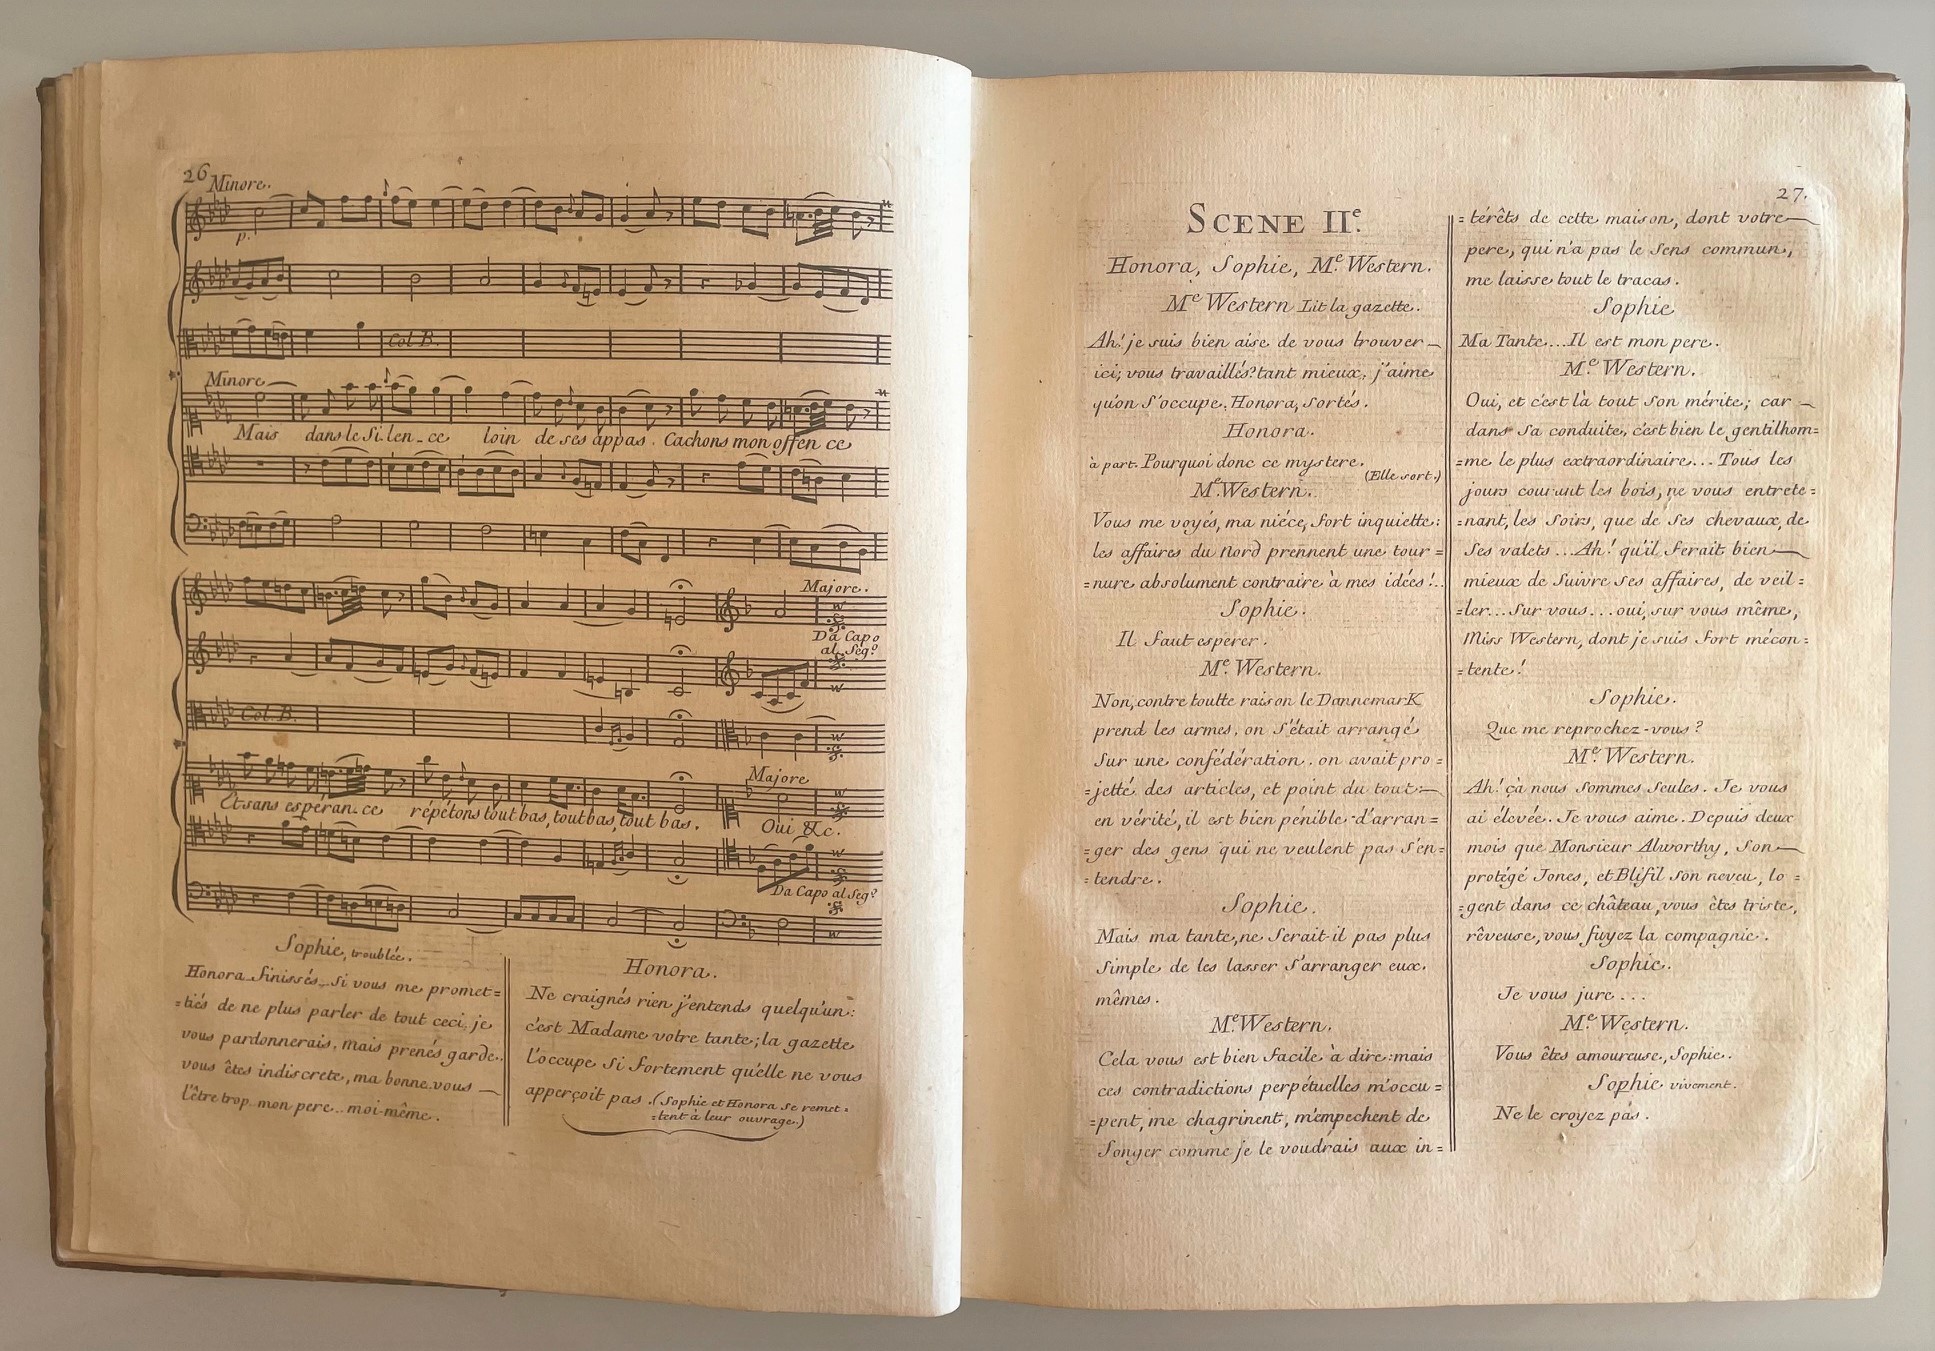 26
Minore.
p.
Col B.
Minore
Mais dans le Si_len_ce loin de ses appas. Cachons mon offen ce
Majore.
Da Capo
al Seg?
Col. B.
Majore
Et sans espéran_ce répétons tout bas, tout bas, tout bas.
Oui &c.
Da Capo al Seg?
Sophie, troublée.
Honora finissés_si vous me promet=
=tiés de ne plus parler de tout ceci, je
vous pardonnerais, mais prenés garde.
vous êtes indiscrete, ma bonne.vous
l'être trop.. mon pere.. moi-même.
Honora.
Ne craignés rien j'entends quelqu'un:
c'est Madame votre tante; la gazette
l'occupe si fortement qu'elle ne vous
apperçoit pas. (Sophie et Honora se remet=
=tent à leur ouvrage.)
27.
SCENE IIe.
Honora, Sophie, Me. Western.
Me Western Lit la gazette.
Ah! je suis bien aise de vous trouver
ici; vous travaillés? tant mieux, j'aime
qu'on s'occupe. Honora, sortés.
Honora.
à part. Pourquoi donc ce mystere.
(Elle sort.)
Me. Western.
Vous me voyés, ma niéce, fort inquiette:
les affaires du Nord prennent une tour=
=nure absolument contraire à mes idées!..
Sophie.
Il faut esperer.
Me. Western.
Non, contre toutte raison le DannemarK
prend les armes. on s'était arrangé
sur une confédération. on avait pro=
=jetté des articles, et point du tout
en vérité, il est bien pénible d'arran=
=ger des gens qui ne veulent pas s'en=
=tendre.
Sophie.
Mais ma tante, ne serait-il pas plus
simple de les lasser s'arranger eux.
mêmes.
Me. Western.
Cela vous est bien facile à dire: mais
ces contradictions perpétuelles m'occu=
=pent, me chagrinent, m'empechent de
songer comme je le voudrais aux in=
=térêts de cette maison, dont votre
pere, qui n'a pas le sens commun,
me laisse tout le tracas.
Sophie
Ma Tante...Il est mon pere.
Me. Western.
Oui, et c'est là tout son mérite; car
dans sa conduite, c'est bien le gentilhom=
=me le plus extraordinaire... Tous les
jours courant les bois, ne vous entrete=
=nant, les soirs, que de ses chevaux, de
ses valets ...Ah! qu'il ferait bien
mieux de suivre ses affaires, de veil=
=ler...sur vous...oui, sur vous même,
Miss Western, dont je suis fort mécon=
=tente!
Sophie.
Que me reprochez-vous?
Me. Western.
Ah! çà nous sommes seules. Je vous
ai élevée. Je vous aime. Depuis deux
mois que Monsieur Alworthy, son
protégé Jones, et Blifil son neveu, lo=
=gent dans ce château, vous êtes triste,
rêveuse, vous fuyez la compagnie.
Sophie.
Je vous jure...
Me. Western.
Vous êtes amoureuse, Sophie.
Sophie vivement.
Ne le croyez pas.